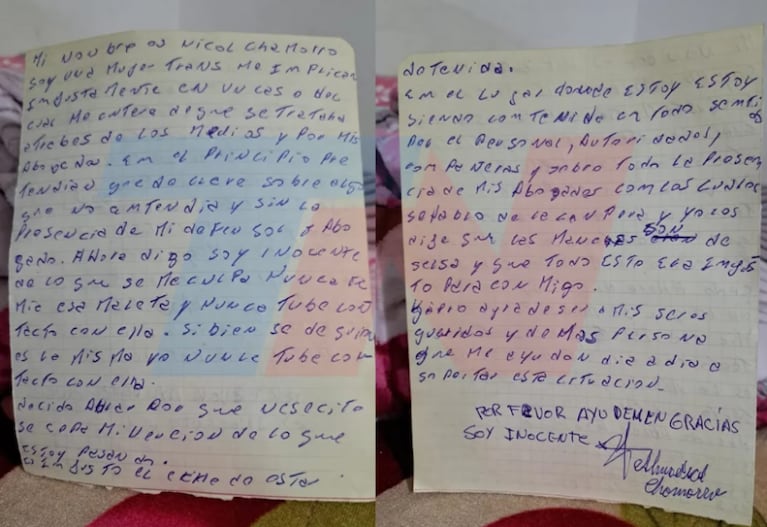 Mi Nombre es Nicol Chamorro
soy una Mujer Trans Me Implican
Injustamente en un caso del
cual Me entere de que se trataba
atrabes de los Medios y Por Mis
Abogada. En el Principio Pre
tendian que declare sobre algo
que no entendia y sin la
Presencia de Mi defensor o Abo
gado. Ahora digo soy INOCENTE
de lo que se Me culpa Nunca
esa Maleta y Nunca Tube con
Tacto con ella. Si bien se de quien
es la Misma yo Nunca Tube con
Tacto con ella.
decido que Nesecito
se sepa Mi de lo que
estoy Pasando.
el estar
detenida.
En el lugar donde ESTOY ESTOY
siendo contenida en todo sentido
Por el Personal, Autoridades,
compañeras y sobre Todo la Presen
cia de Mis Abogadas con las cuales
se hablo de y yo les
dije que las son de
y que Todo ESTO era Injus
to Para con Migo.
Quiero agradeser a Mis seres
queridos y demas Persona
que Me ayudan dia a dia a
soportar esta situacion.
POR FAVOR AYUDEMEN GRACIAS
SOY INOCENTE
Chamorro